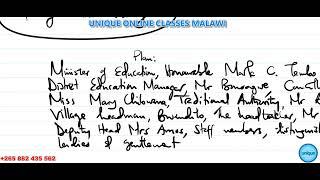 UNIQUE ONLINE CLASSES MALAWI
Plan;
Minister of Education, Honourable Mark C. Tembo
District Education Manager, Mr
Miss Mary Chilowana, Traditional Authority, Mr
Village headman, Bwundilo, The headteacher, Mr
Deputy Head Mrs Amos, Staff members, distinguished
ladies & gentlement
+265 882 435 562
unique